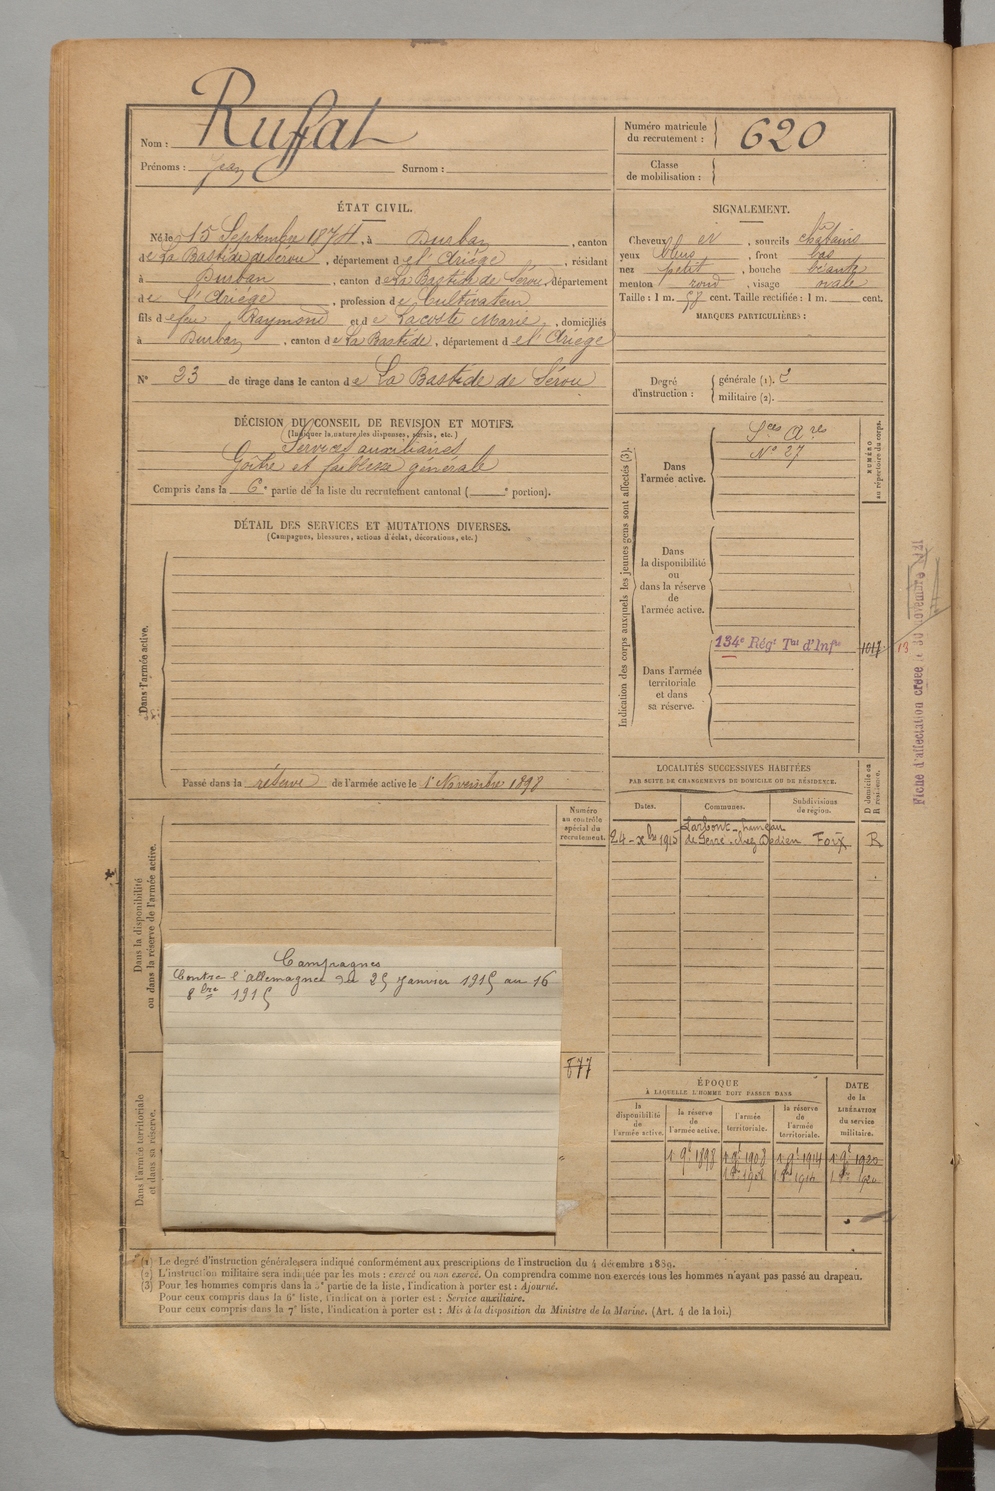 Nom : Ruffat
Prénoms : Jean Surnom :
Numéro matricule du recrutement : 620
Classe de mobilisation :
ÉTAT CIVIL.
Né le 15 Septembre 1874, à Durban, canton
de La Bastide de Sérou, département de l'Ariège, résidant
à Durban, canton de La Bastide de Sérou, département
de l'Ariège, profession de Cultivateur
fils de feu Raymond et de Lacoste Marie, domiciliés
à Durban, canton de La Bastide, département de l'Ariège
N° 23 de tirage dans le canton de La Bastide de Sérou
SIGNALEMENT.
Cheveux et, sourcils châtains
yeux bleus, front bas
nez petit, bouche béante
menton rond, visage ovale
Taille : 1 m. 58 cent. Taille rectifiée : 1 m. cent.
MARQUES PARTICULIÈRES :
Degré d'instruction : générale (1). 2
militaire (2).
DÉCISION DU CONSEIL DE REVISION ET MOTIFS.
(Indiquer la nature des dispenses, sursis, etc.)
Services auxiliaires
Goître et faiblesse générale
Compris dans la 6e partie de la liste du recrutement cantonal ( e portion).
DÉTAIL DES SERVICES ET MUTATIONS DIVERSES.
(Campagnes, blessures, actions d'éclat, décorations, etc.)
Dans l'armée active.
Passé dans la réserve de l'armée active le 1 Novembre 1898
Indication des corps auxquels les jeunes gens sont affectés (3).
NUMÉRO au répertoire du corps.
Dans l'armée active.
Sces Ares
N° 27
Dans la disponibilité ou dans la réserve de l'armée active.
Dans l'armée territoriale et dans sa réserve.
134e Régt Tal d'Infie
1017
13
Fiche d'affectation créée le 30 novembre
LOCALITÉS SUCCESSIVES HABITÉES
PAR SUITE DE CHANGEMENTS DE DOMICILE OU DE RÉSIDENCE.
Dates. Communes. Subdivisions de région. D domicile ou R résidence.
24 - Xbre 1915 Larbont - hameau
de Serre, chez Dedieu Foix R
Numéro au contrôle spécial du recrutement.
Dans la disponibilité ou dans la réserve de l'armée active.
Campagnes
Contre l'allemagne du 25 Janvier 1915 au 16
8bre 1915
877
Dans l'armée territoriale et dans sa réserve.
ÉPOQUE
À LAQUELLE L'HOMME DOIT PASSER DANS
la disponibilité de l'armée active.
la réserve de l'armée active.
l'armée territoriale.
la réserve de l'armée territoriale.
DATE de la LIBÉRATION du service militaire.
1 9t 1898 1 9t 1908 1 9t 1914 1 9t 1920
(1) Le degré d'instruction générale sera indiqué conformément aux prescriptions de l'instruction du 4 décembre 1889.
(2) L'instruction militaire sera indiquée par les mots : exercé ou non exercé. On comprendra comme non exercés tous les hommes n'ayant pas passé au drapeau.
(3) Pour les hommes compris dans la 5e partie de la liste, l'indication à porter est : Ajourné.
Pour ceux compris dans la 6e liste, l'indication à porter est : Service auxiliaire.
Pour ceux compris dans la 7e liste, l'indication à porter est : Mis à la disposition du Ministre de la Marine. (Art. 4 de la loi.)